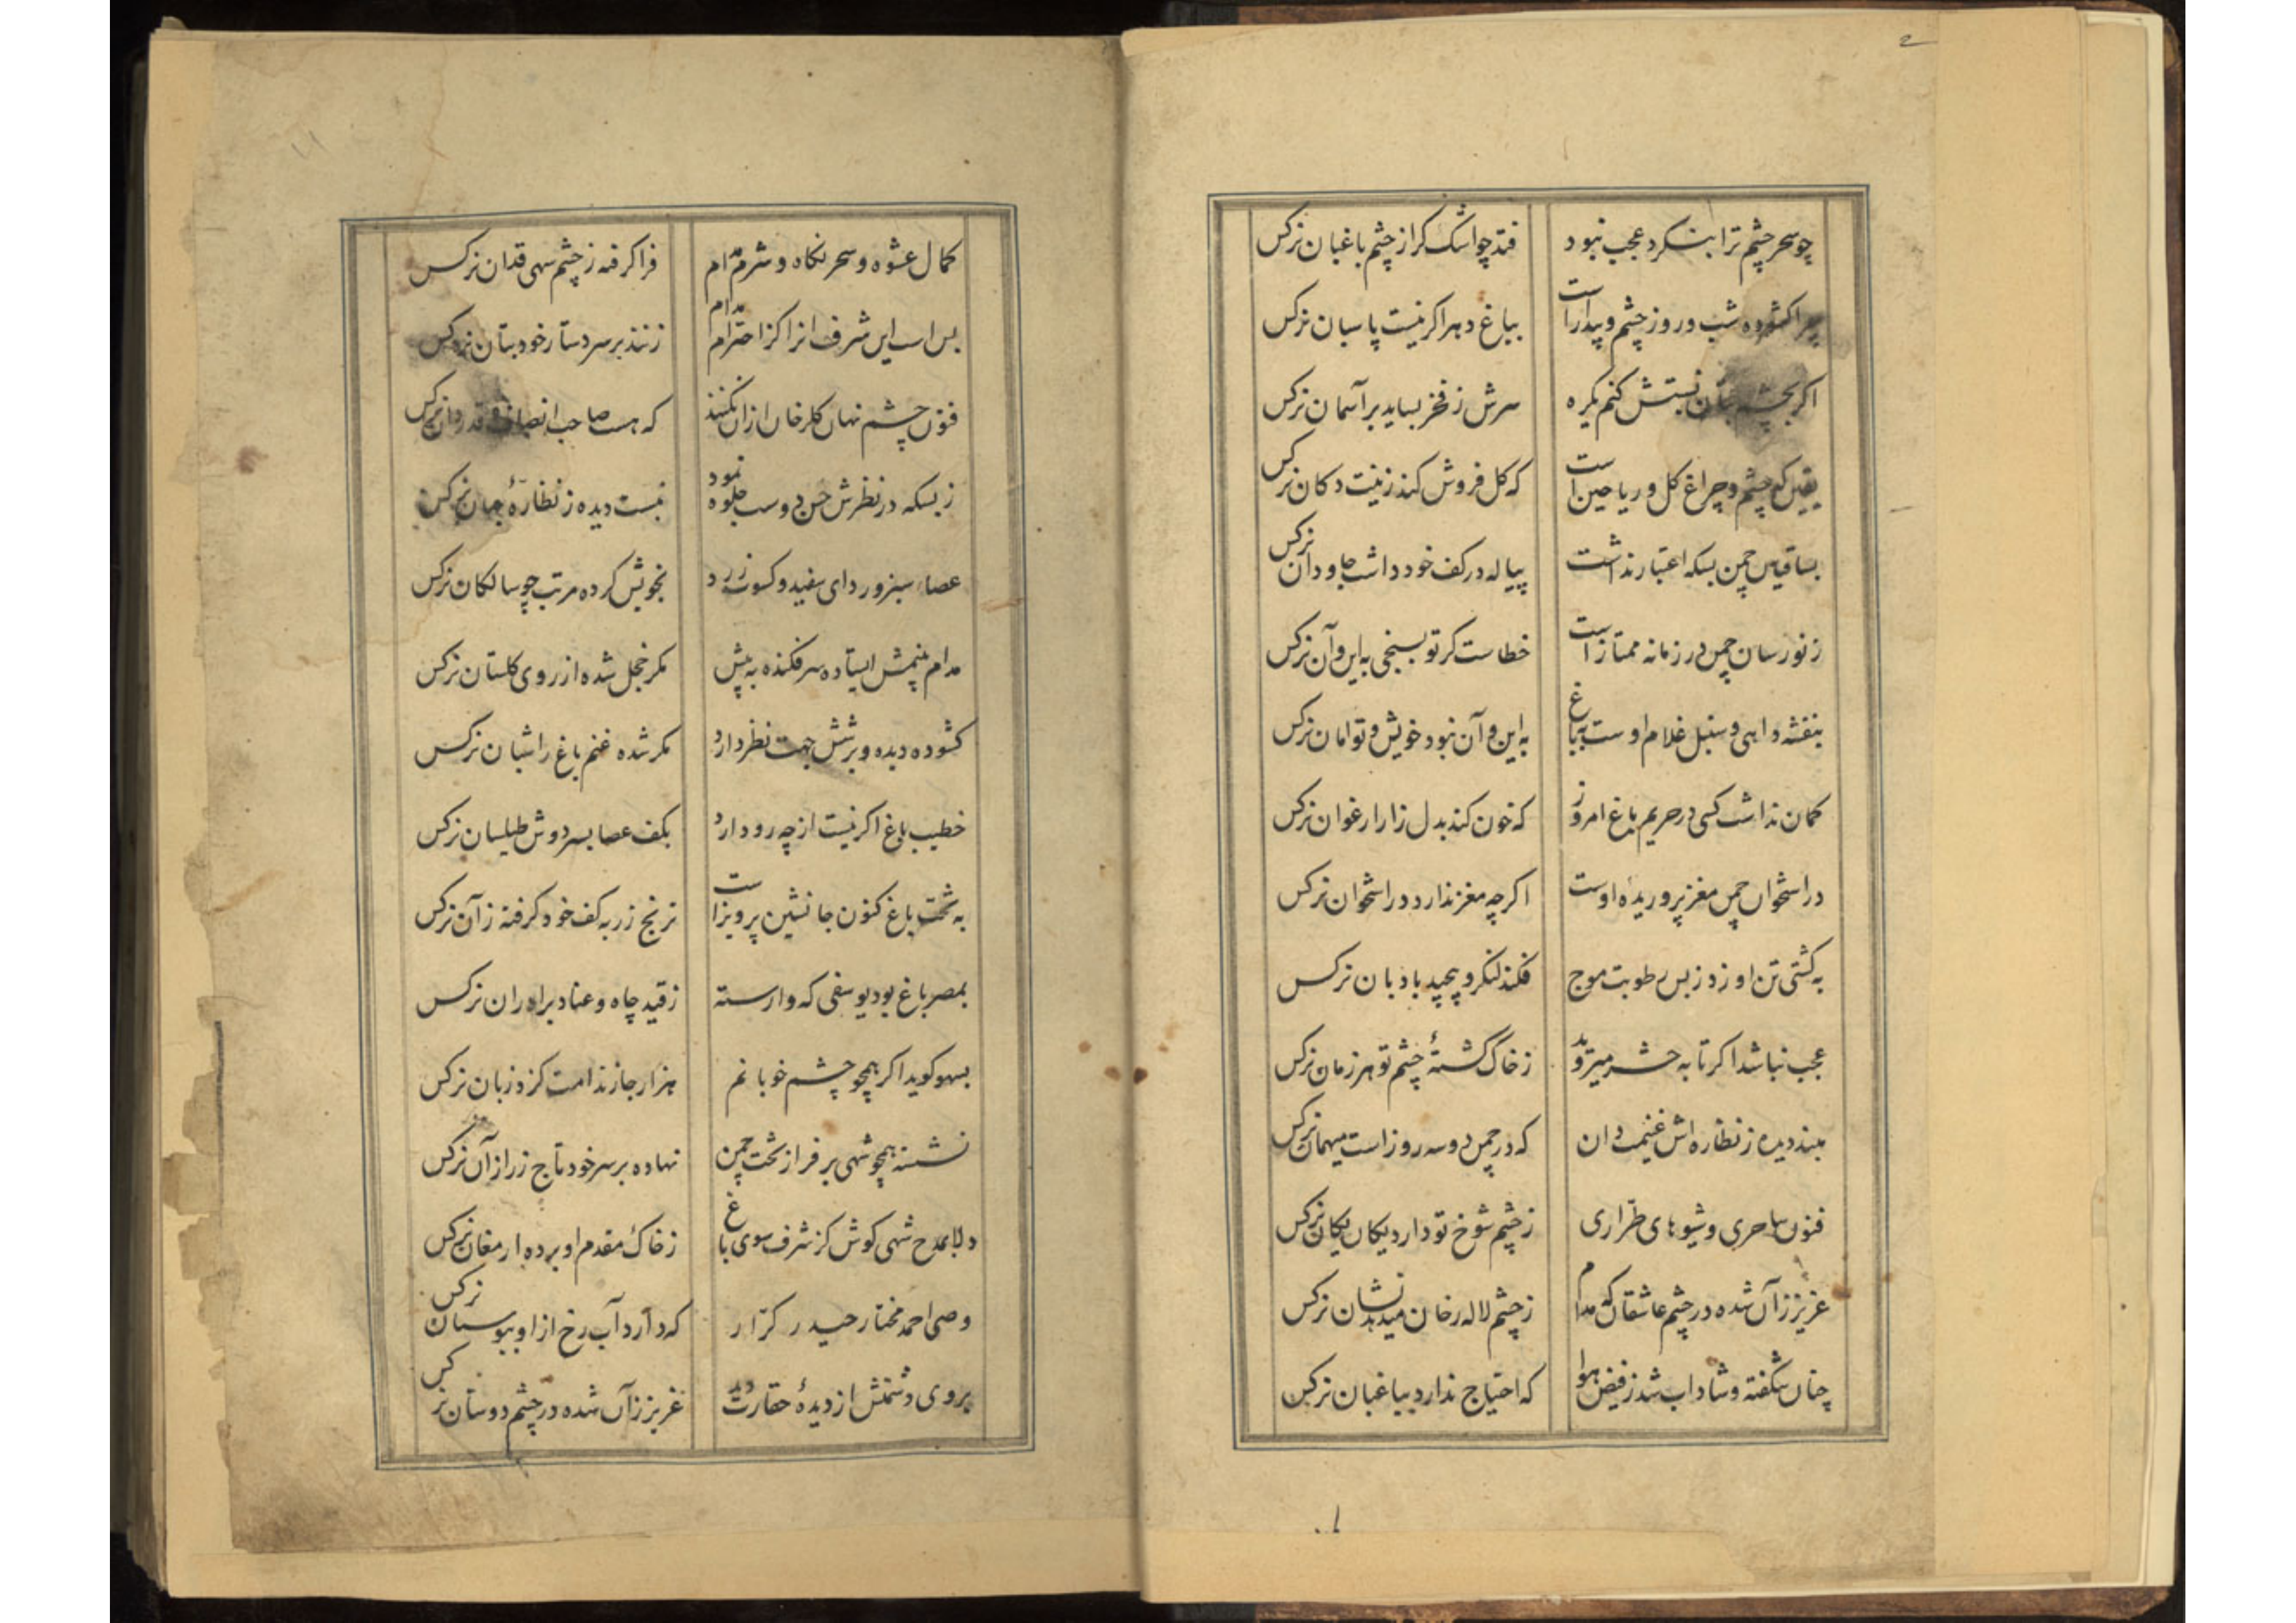 چو سحر چشم ترا بنگرد عجب نبود
فتد چو اشک گر از چشم باغبان نرگس
چرا کشوده شب و روز چشم و بیدار است
بباغ دهر اگر نیست پاسبان نرگس
اگر بچشم بتان نسبتش کنم یکره
سرش ز فخر بساید بر آسمان نرگس
یقین که چشم و چراغ گل و ریاحین است
که گل فروش کند زینت دکان نرگس
بساقیان چمن بسکه اعتبار نداشت
پیاله در کف خود داشت جاودان نرگس
ز نورسان چمن در زمانه ممتاز است
خطاست گر تو بسنجی به این و آن نرگس
بنفشه داهی و سنبل غلام اوست بباغ
به این و آن نبود خویش و توامان نرگس
گمان نداشت کسی در حریم باغ امروز
که خون کند بدل زار ارغوان نرگس
در استخوان چمن مغز پروریده اوست
اگرچه مغز ندارد در استخوان نرگس
به کشتی تن او زد ز بس رطوبت موج
فکند لنگر و پیچید بادبان نرگس
عجب نباشد اگر تا به حشر میروید
ز خاک کشتهٔ چشم تو هر زمان نرگس
مبند دیده ز نظاره‌اش غنیمت دان
که در چمن دو سه روز است میهمان نرگس
فنون ساحری و شیوهای طراری
ز چشم شوخ تو دارد یکان یکان نرگس
عزیز زآن شده در چشم عاشقان که مدام
ز چشم لاله رخان میدهد نشان نرگس
چنان شکفته و شاداب شد ز فیض هوا
که احتیاج ندارد بباغبان نرگس
کمال عشوه و سحر نگاه و شرم مدام
فرا گرفته ز چشم سهی قدان نرگس
بس است این شرف او را کز احترام مدام
زنند بر سر دستار خود بتان نرگس
فنون چشم نهان گلرخان ازان نکنند
که هست صاحب انصاف و قدردان نرگس
ز بسکه در نظرش حسن دوست جلوه نمود
نبست دیده ز نظارهٔ جهان نرگس
عصای سبز و ردای سفید و کسوت زرد
بخویش کرده مرتب چو سالکان نرگس
مدام بینمش ایستاده سر فکنده به پیش
مگر خجل شده از روی گلستان نرگس
کشوده دیده و بر شش جهت نظر دارد
مگر شده غنم باغ را شبان نرگس
خطیب باغ اگر نیست از چه رو دارد
بکف عصا بسر دوش طیلسان نرگس
به تخت باغ کنون جانشین پرویز است
ترنج زر به کف خود گرفته زآن نرگس
بمصر باغ بود یوسفی که وارسته
ز قید چاه و عناد برادران نرگس
بسهو گوید اگر همچو چشم خوبانم
هزار جا ز ندامت گزد زبان نرگس
نشسته همچو شهی بر فراز تخت چمن
نهاده بر سر خود تاج زر از آن نرگس
دلا بمدح شهی کوش کز شرف سوی باغ
ز خاک مقدم او برده ارمغان نرگس
وصی احمد مختار حیدر کرار
که دارد آب رخ از او ببوستان نرگس
بروی دشمنش از دیدهٔ حقارت دید
عزیز زآن شده در چشم دوستان نرگس